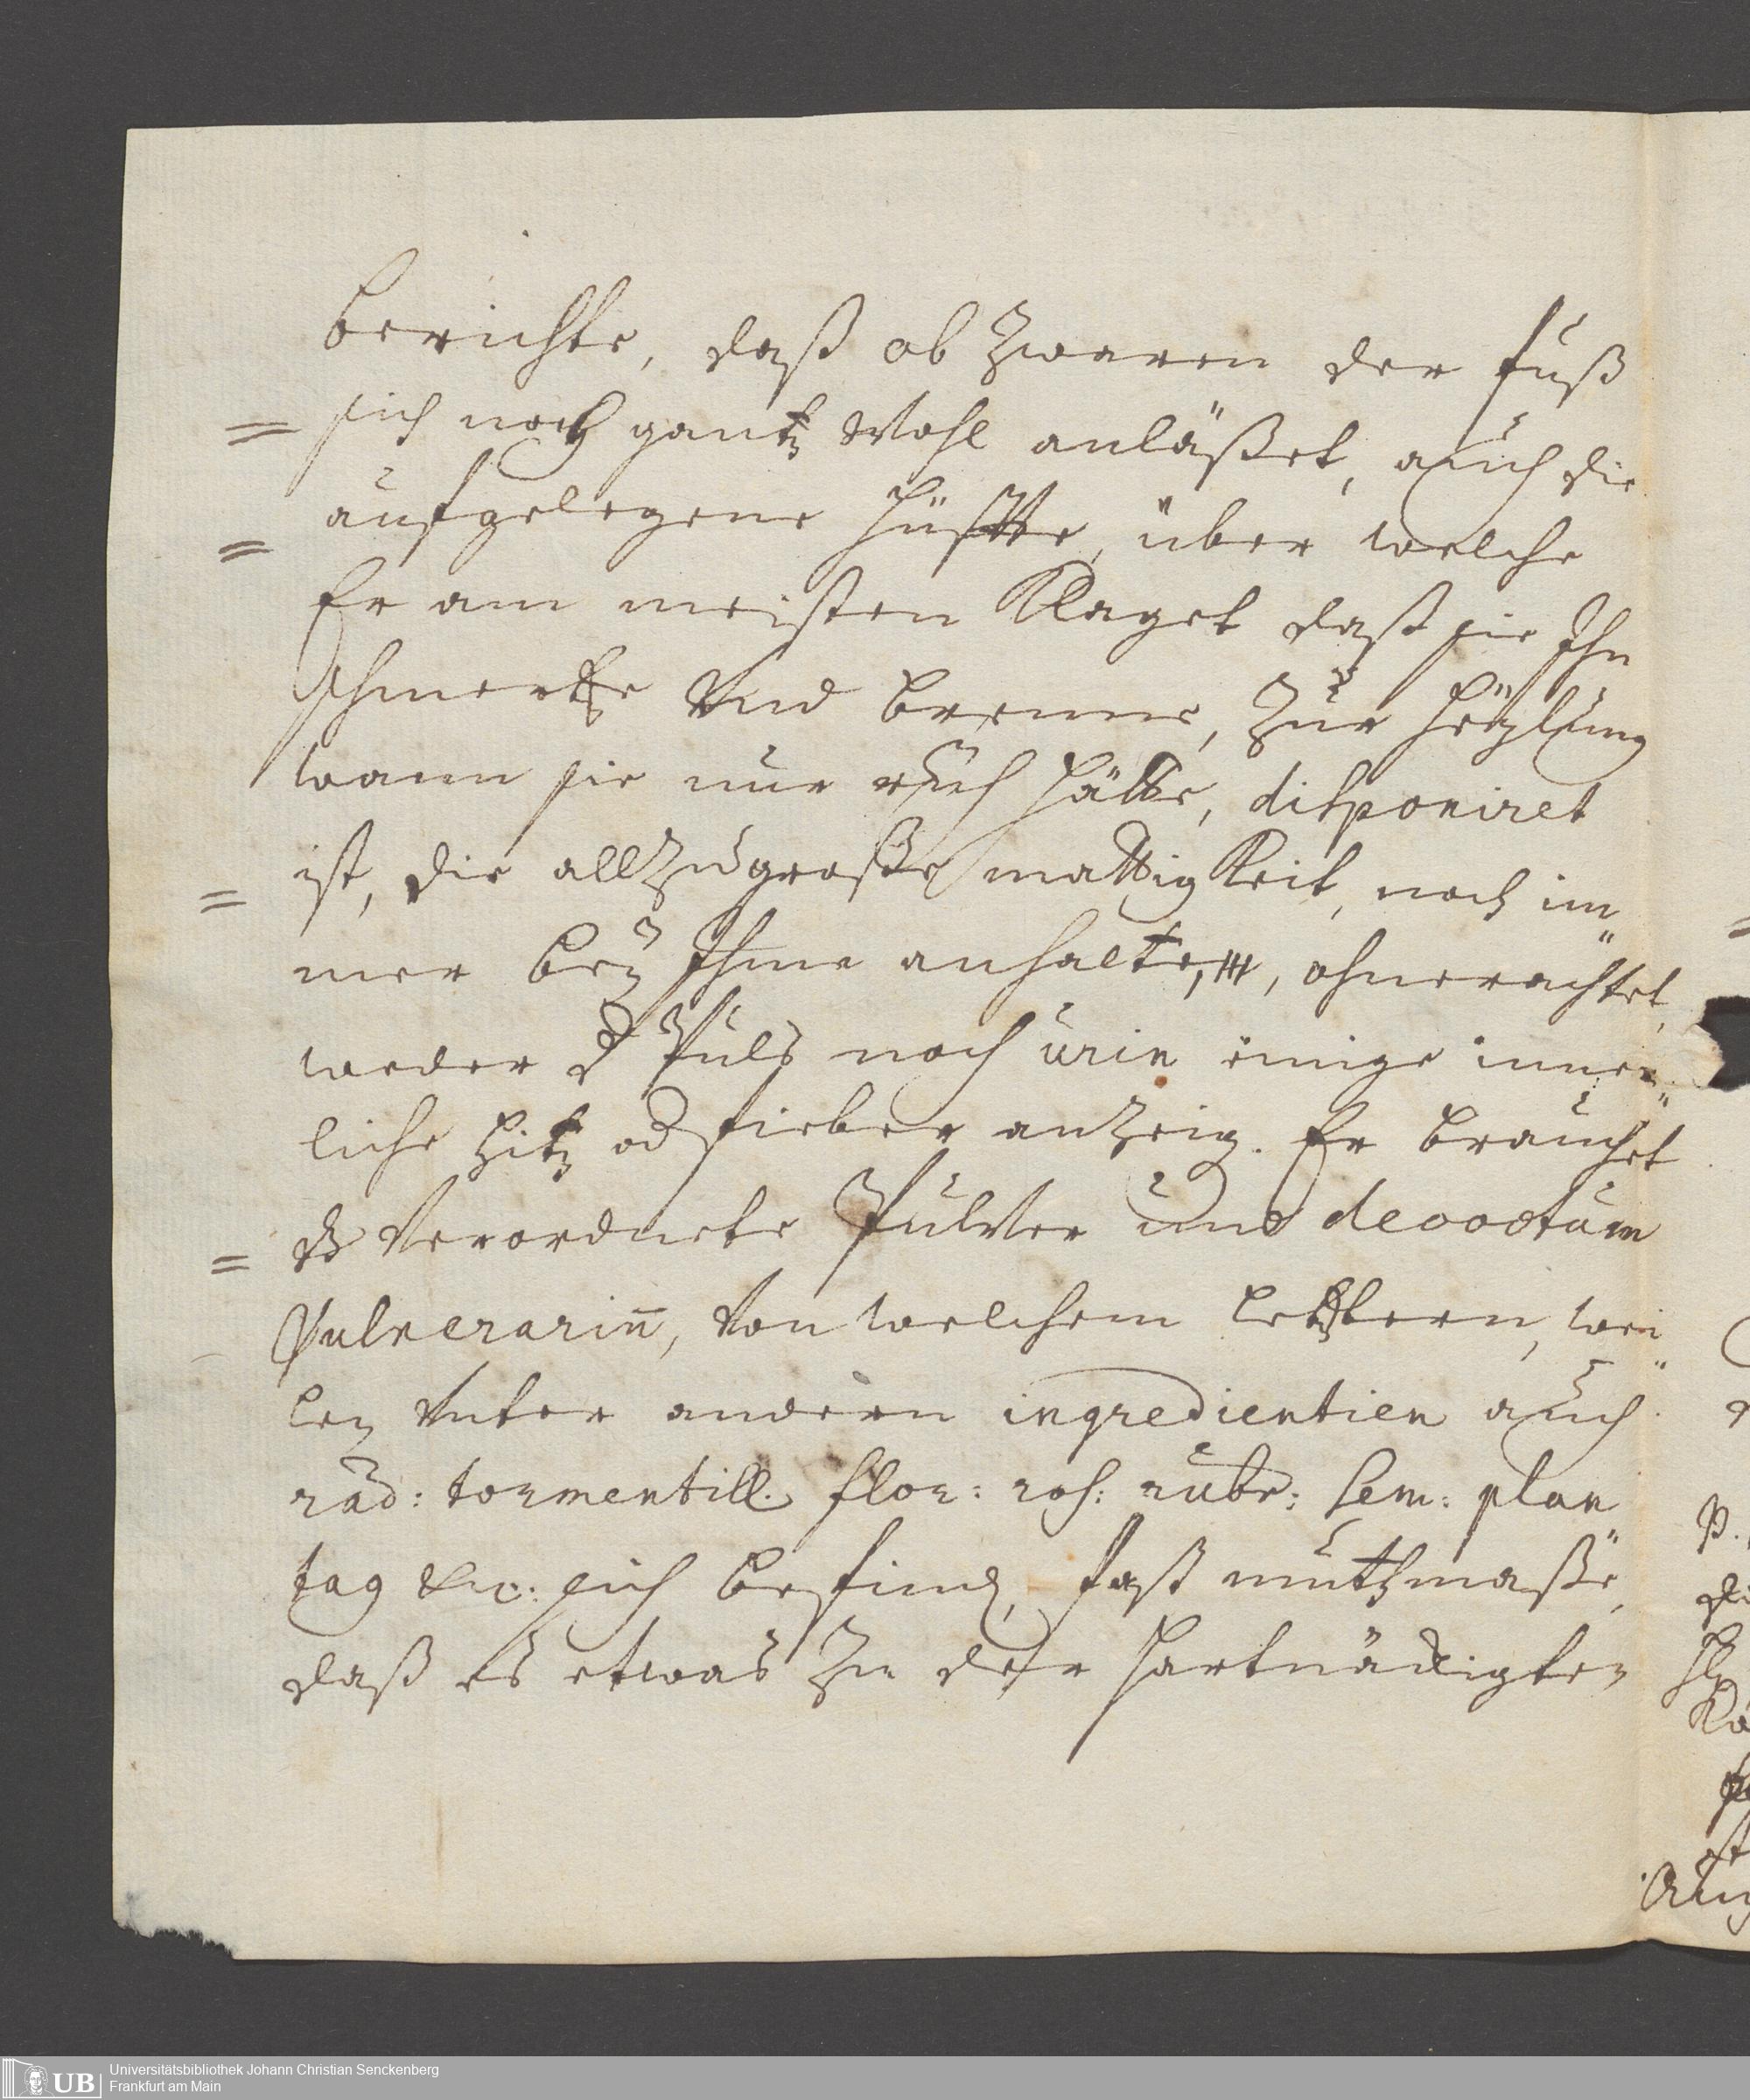 berichte, daß ob zwaren der Fuß
= sich noch gantz Wohl anläßet, auch die
aufgelegene hüffte, über welche
= Er am meisten Klaget daß sie Ihn
schmertze Vnd brenne, zur heylung
wann sie nur ruh hätte, disponiret
= ist, die allzugroße mattigkeit, noch im"
mer bey Ihme anhalte, ohnerachtet,
weder d Puls noch urin einige inner"
liche hitz od fieber anzeig. Er brauchet
= dz Verordnete Pulver und decoctum
Vulnerariū, Von welchem letztern, wei"
len Vnter andern ingredientien auch
rad: tormentill. flor: ros: rubr: sem: plan"
tag etc: sich befind, fast muthmaße,
daß es etwas zu der hartnäckigten
UB Universitätsbibliothek Johann Christian Senckenberg
Frankfurt am Main